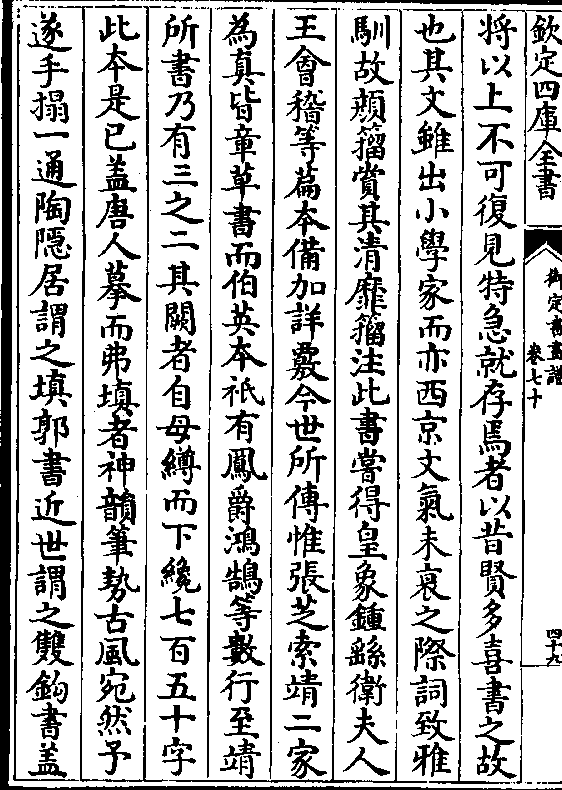 欽定四庫全書
御定書畫譜
卷七十
四十九
將以上不可復見特急就存焉者以昔賢多喜書之故
也其文雖出小學家而亦西京文氣未衰之際詞致雅
馴故頰籀賞其清靡籀注此書嘗得皇象鍾繇衛夫人
王會稽等篇本備加詳覈今世所傳惟張芝索靖二家
為真皆章草書而伯英本祇有鳳爵鴻鵠等數行至靖
所書乃有三之二其闕者自母縛而下纔七百五十字
此本是已蓋唐人摹而弗填者神韻筆勢古風宛然予
遂手搨一通陶隱居謂之填郭書近世謂之雙鈎書蓋